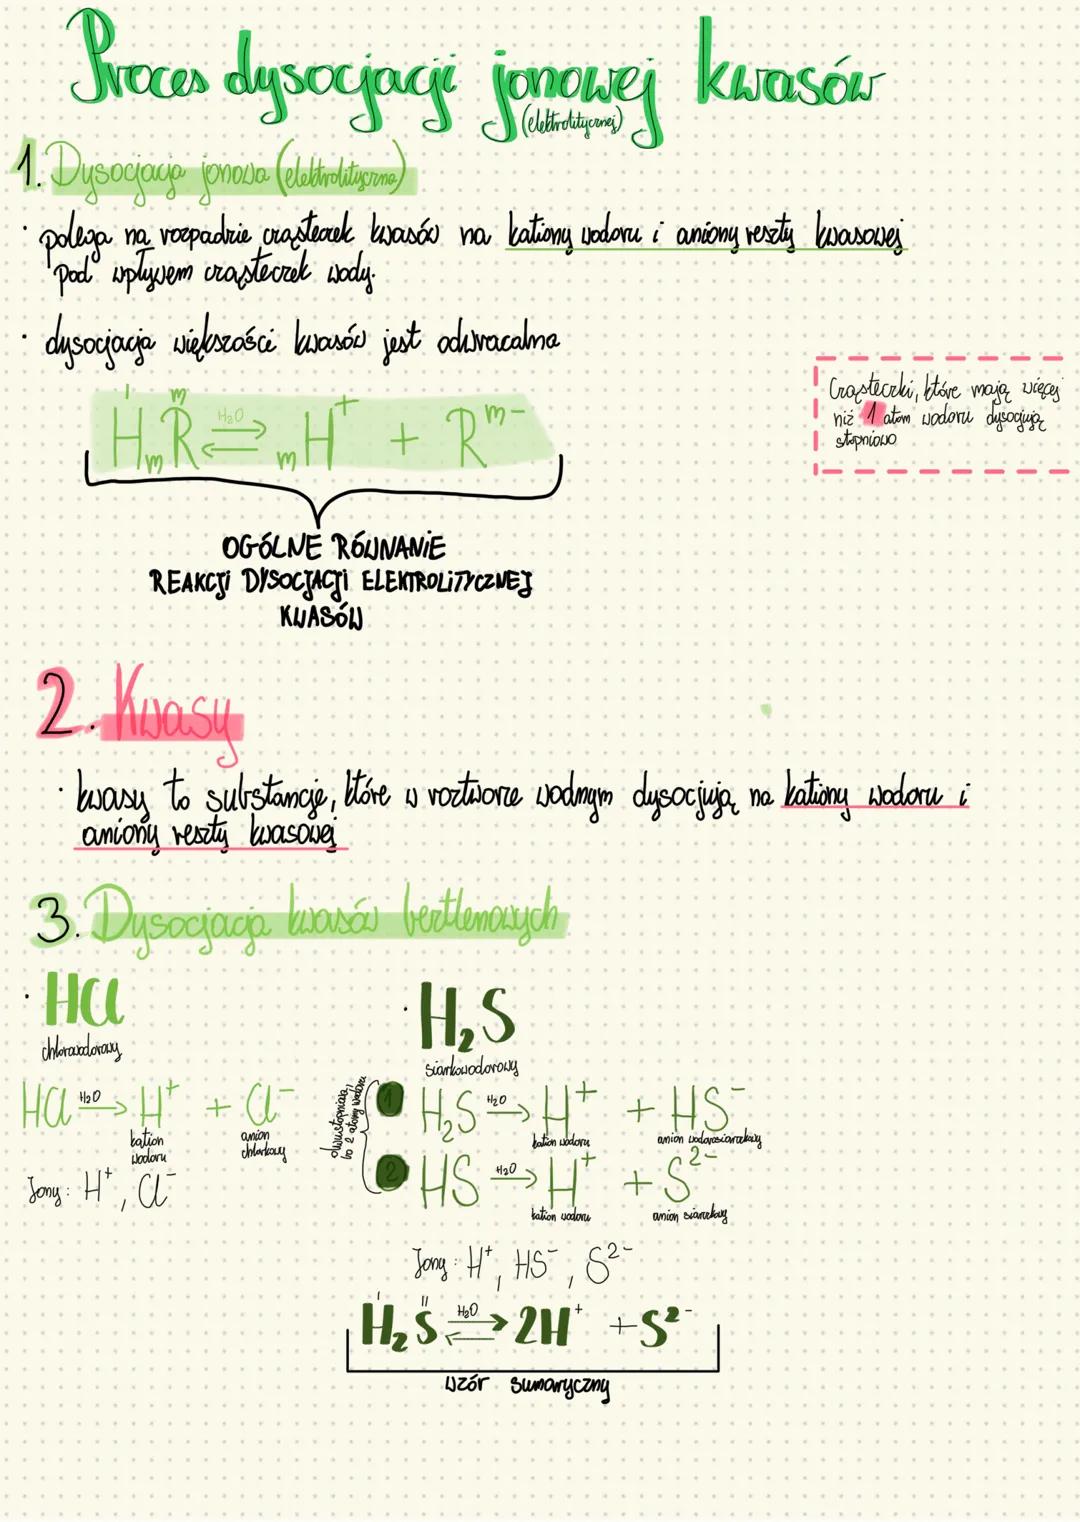 Proces dysocjacji jonowej kwasów
(elektrolitycznej)
1. Dysocjacja jonowa (elektrolityczna)
· polega na rozpadzie cząsteczek kwasów na kationy wodoru i aniony reszty kwasowej
pod wpływem cząsteczek wody.
· dysocjacja większości kwasów jest odwracalna
Cząsteczki, które mają więcej
niż 1 atom wodoru dysocjują
stopniowo
I m
HₘR ⇌ mH⁺ + Rᵐ⁻
H₂O
OGÓLNE RÓWNANIE
REAKCJI DYSOCJACJI ELEKTROLITYCZNEJ
KWASÓW
2. Kwasy
· kwasy to substancje, które w roztworze wodnym dysocjują na kationy wodoru i
aniony reszty kwasowej
3. Dysocjacja kwasów beztlenowych
· HCl
chlorowodorowy
HCl H₂O → H⁺ + Cl⁻
kation
wodoru
anion
chlorkowy
Jony: H⁺, Cl⁻
· H₂S
siarkowodorowy
dwustopniowa,
bo 2 atomy wodoru
1 H₂S H₂O → H⁺ + HS⁻
kation wodoru anion wodorosiarczkowy
2 HS H₂O → H⁺ + S²⁻
kation wodoru anion siarczkowy
Jony: H⁺, HS⁻, S²⁻
I II
H₂S H₂O ⇌ 2H⁺ + S²⁻
wzór sumaryczny